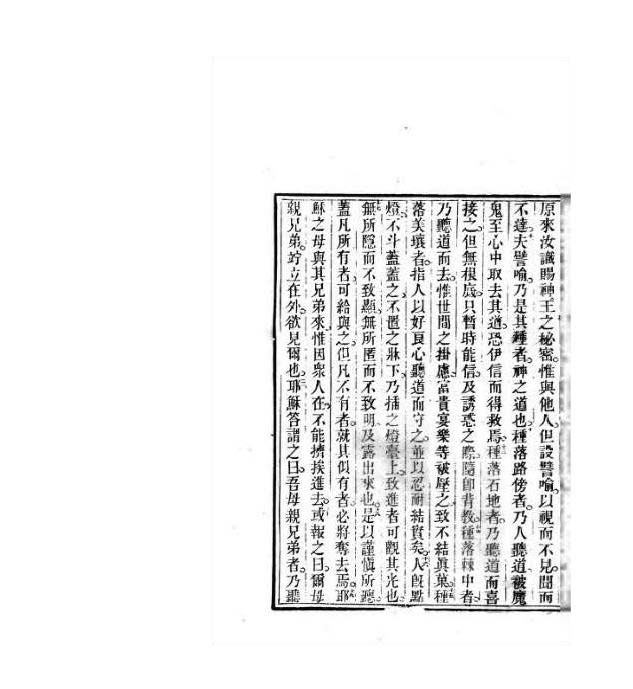 原來汝識賜神王之秘密。惟與他人。但設譬喻。以視而不見。聞而
不達。夫譬喻。乃是其種者。神之道也。種落路傍者。乃人聽道被魔
鬼至心中取去其道。恐伊信而得救焉。種落石地者。乃聽道而喜
接之。但無根底。只暫時能信。及誘惑之際。隨卽背教。種落棘中者。
乃聽道而去。惟世間之掛慮富貴宴樂等被壓之致不結眞菓。種
落美壤者。指人以好良心聽道而守之。並以忍耐結實矣。人旣點
燈。不斗蓋蓋之。不置之牀下。乃插之燈臺上。致進者可觀其光也。
無所隱而不致顯。無所匿而不致明及露出來也。是以謹愼所聽。
蓋凡所有者。可給與之。但凡不有者。就其似有者。必將奪去焉。耶
穌之母與其兄弟來。惟因眾人在。不能擠挨進去。或報之曰。爾母
親兄弟。竚立在外。欲見爾也。耶穌答謂之曰。吾母親兄弟者。乃聽